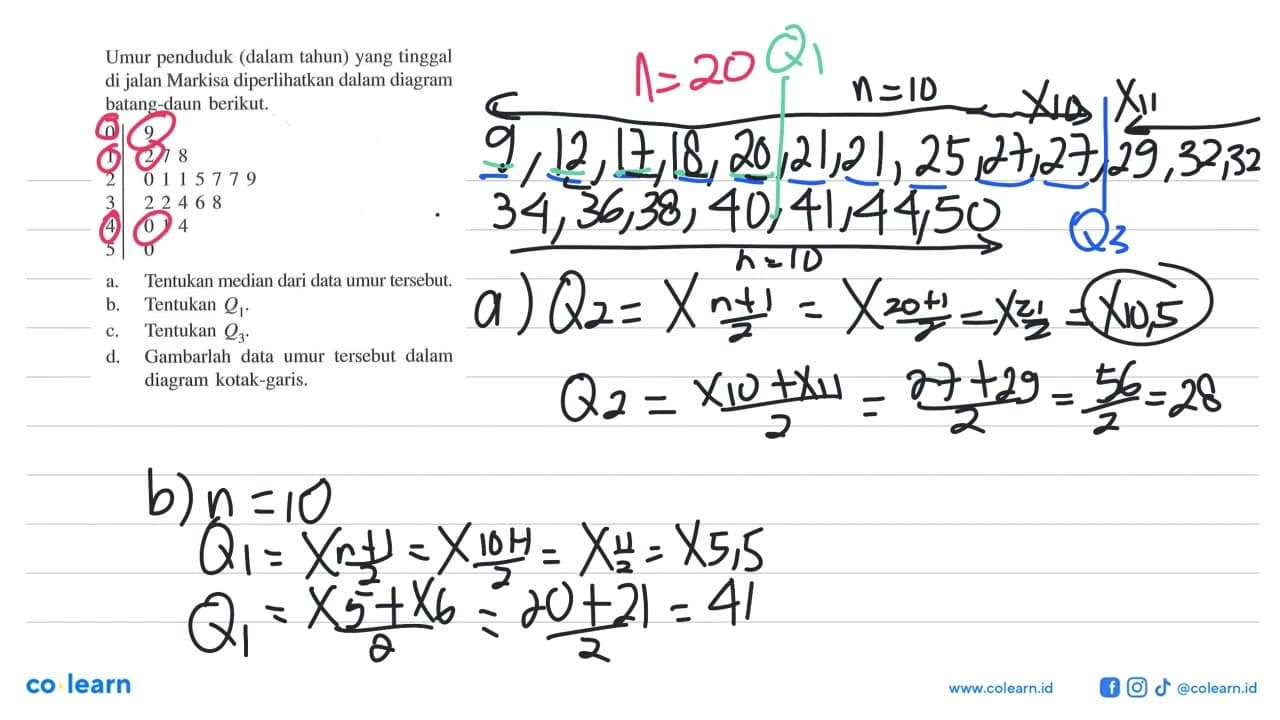 Umur penduduk (dalam tahun) yang tinggal
di jalan Markisa diperlihatkan dalam diagram
batang-daun berikut.
0 | 9
1 | 2 7 8
2 | 0 1 1 5 7 7 9
3 | 2 2 4 6 8
4 | 0 1 4
5 | 0
a. Tentukan median dari data umur tersebut.
b. Tentukan Q1.
c. Tentukan Q3.
d. Gambarlah data umur tersebut dalam
diagram kotak-garis.
n=20 Q1
n=10 X10 X11
9, 12, 17, 18, 20, 21, 21, 25, 27, 27, 29, 32, 32
34, 36, 38, 40, 41, 44, 50 Q3
n=10
a) Q2 = X n+1/2 = X 20+1/2 = X 21/2 = X10,5
Q2 = X10+X11/2 = 27+29/2 = 56/2 = 28
b) n=10
Q1 = X n+1/2 = X 10+1/2 = X 11/2 = X5,5
Q1 = X5+X6/2 = 20+21/2 = 41
co·learn
www.colearn.id @colearn.id